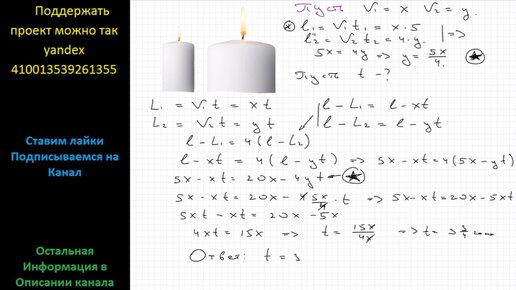 Поддержать
проект можно так
yandex
410013539261355
Ставим лайки
Подписываемся на
Канал
Остальная
Информация в
Описании канала
Пусть V₁ = x V₂ = y.
l₁ = V₁t₁ = x · 5
l₂ = V₂t₂ = 4 · y.
5x = 4y ⇒ y = 5x/4.
Пусть t - ?
L₁ = V₁t = xt
L₂ = V₂t = yt
l - L₁ = l - xt
l - L₂ = l - yt
l - L₁ = 4(l - L₂)
l - xt = 4(l - yt) ⇒ 5x - xt = 4(5x - yt)
5x - xt = 20x - 4yt
5x - xt = 20x - 4 5x/4 · t ⇒ 5x - xt = 20x - 5xt
5xt - xt = 20x - 5x
4xt = 15x ⇒ t = 15x/4x ⇒ t = 3 3/4
Ответ: t = 3